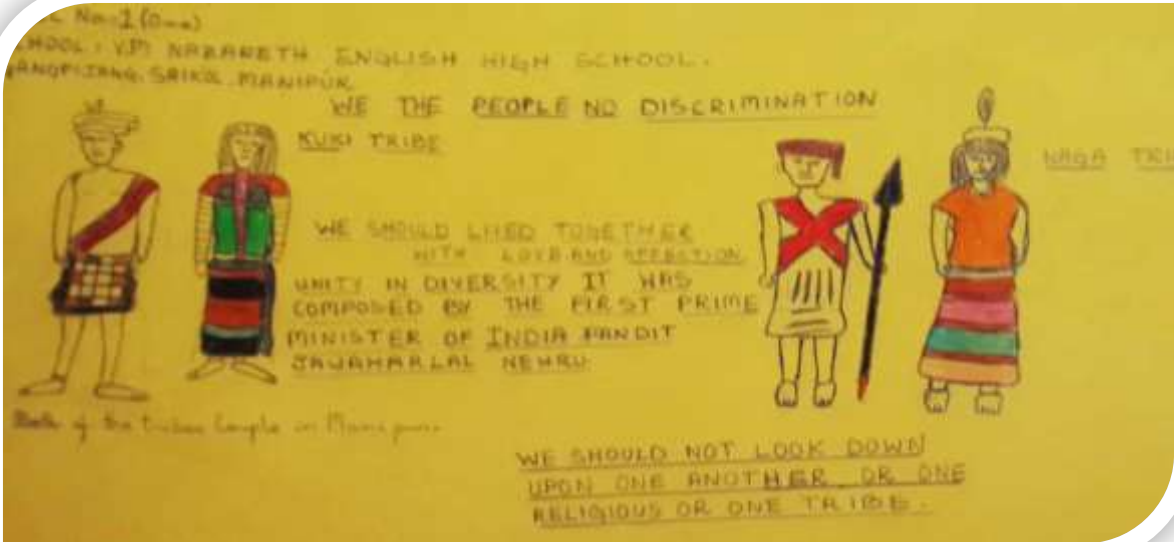 L No.-1 (One)
CHOOL: V.M NAZARETH ENGLISH HIGH SCHOOL.
SAIKUL. MANIPUR
WE THE PEOPLE NO DISCRIMINATION
KUKI TRIBE
NAGA TRI
WE SHOULD LIVED TOGETHER
WITH LOVE AND AFFECTION
UNITY IN DIVERSITY IT WAS
COMPOSED BY THE FIRST PRIME
MINISTER OF INDIA PANDIT
JAWAHARLAL NEHRU
of the tribes Couple in Manipur.
WE SHOULD NOT LOOK DOWN
UPON ONE ANOTHER OR ONE
RELIGIOUS OR ONE TRIBE.